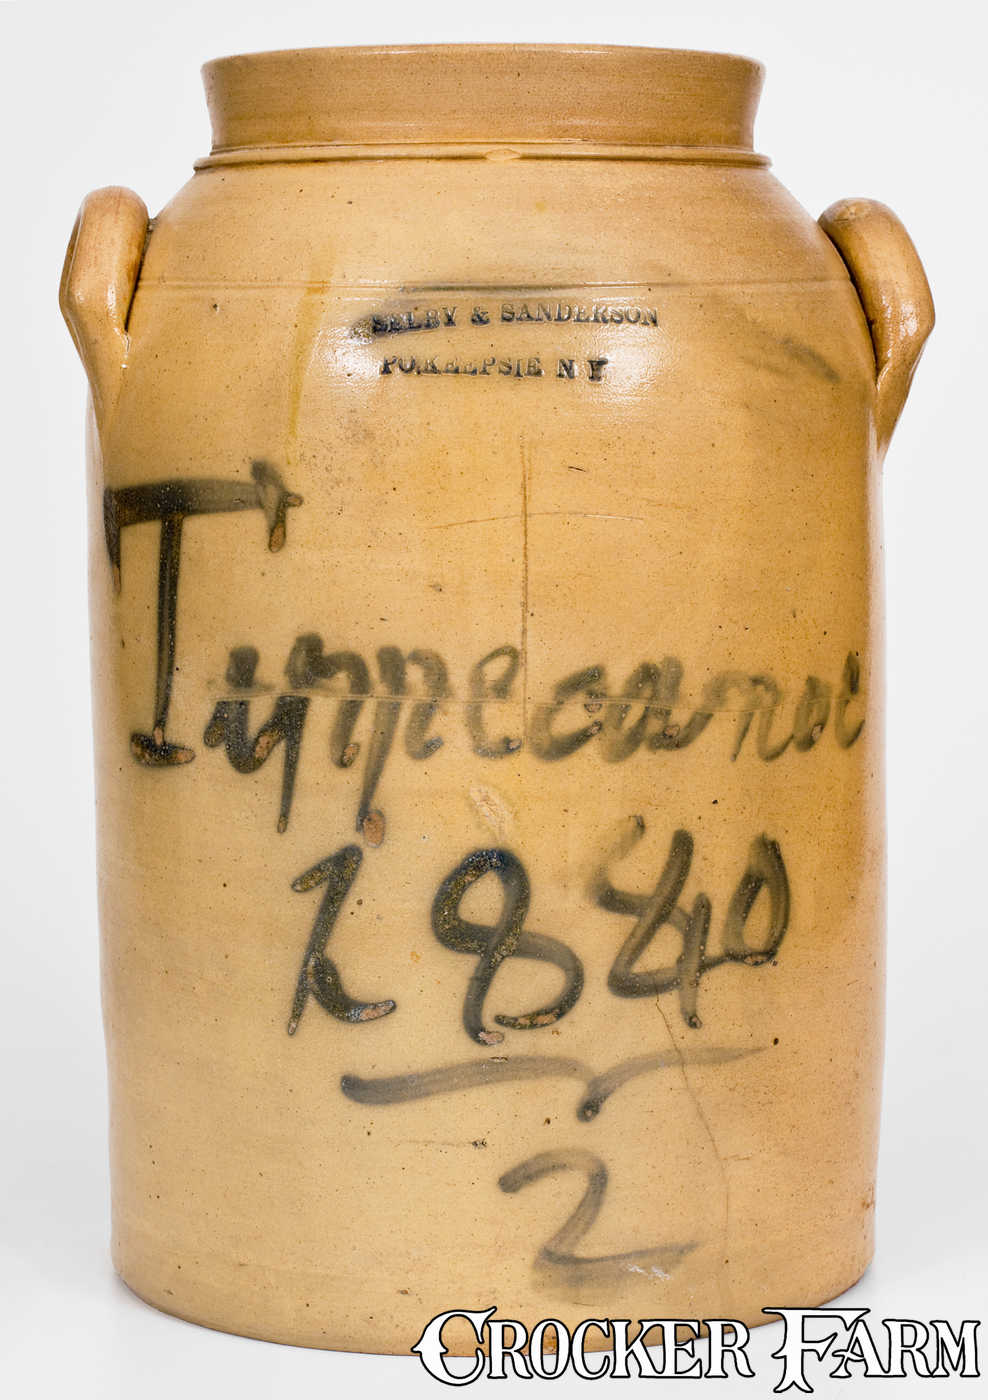 SELBY & SANDERSON
PO,KEEPSIE N Y
Tippecanoe
1840
2
CROCKER FARM